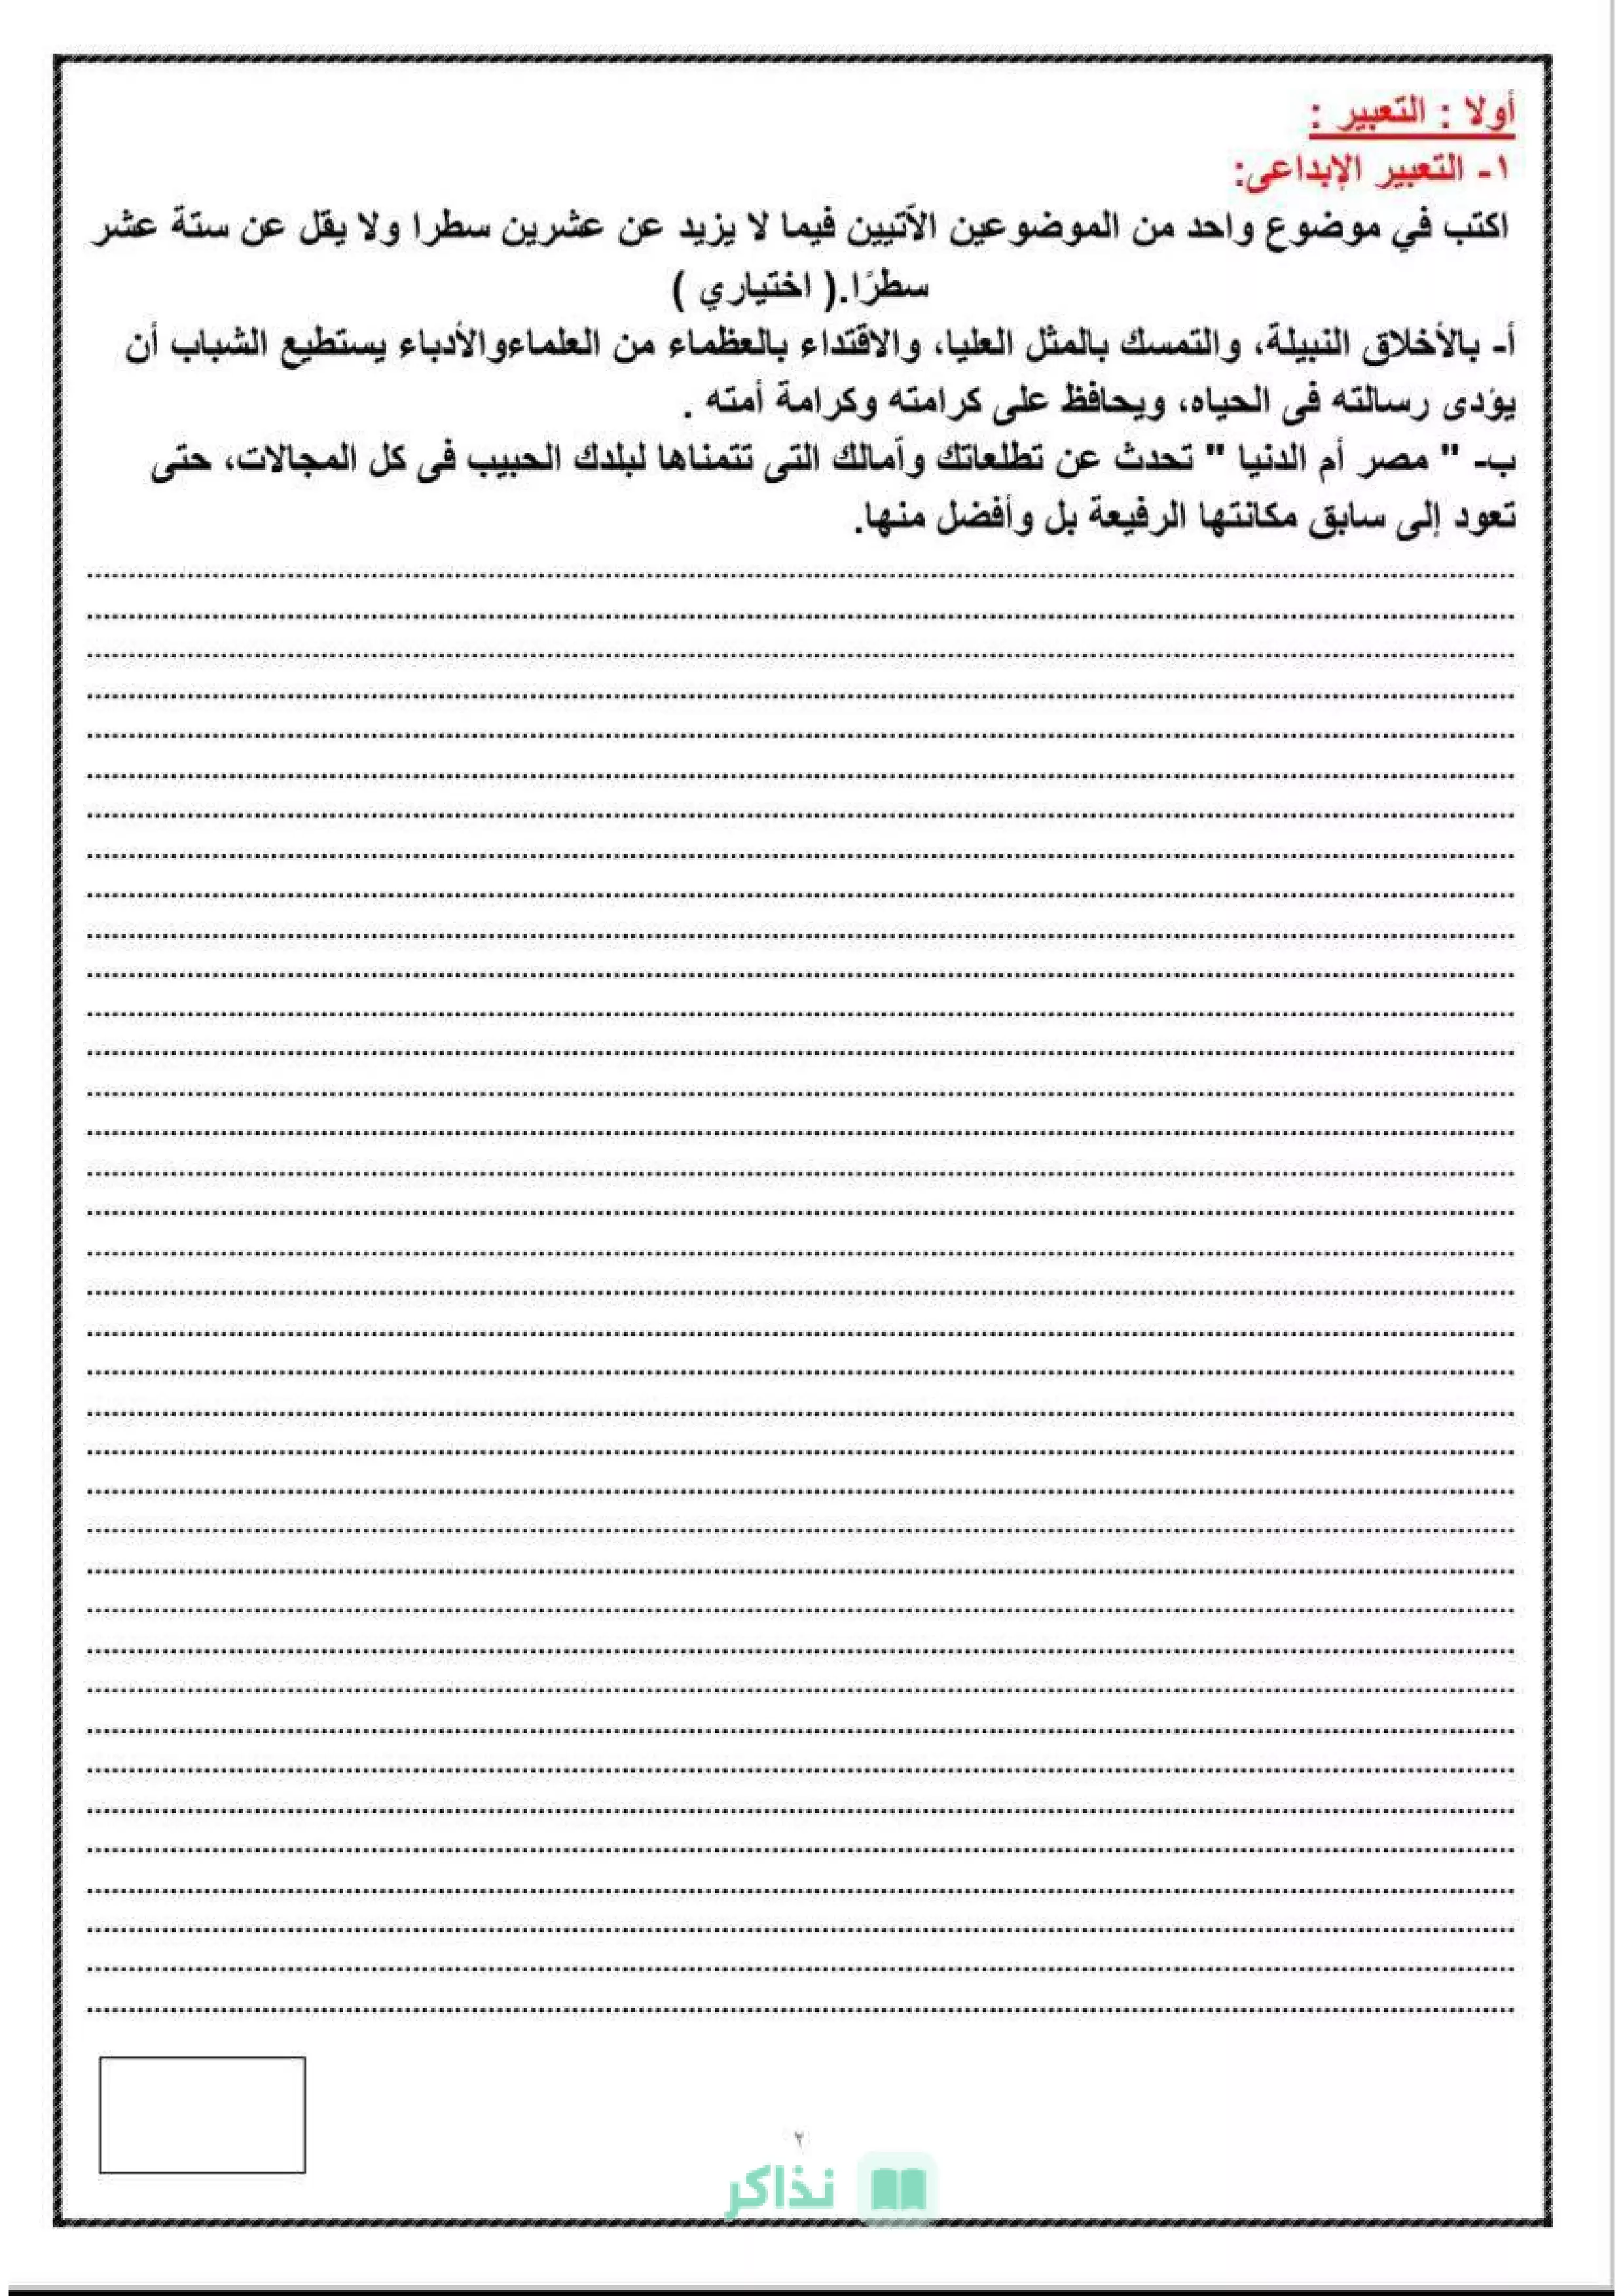 أولا : التعبير :
١- التعبير الإبداعى:
اكتب في موضوع واحد من الموضوعين الآتيين فيما لا يزيد عن عشرين سطرا ولا يقل عن ستة عشر
سطرًا.( اختياري )
أ- بالأخلاق النبيلة، والتمسك بالمثل العليا، والاقتداء بالعظماء من العلماءوالأدباء يستطيع الشباب أن
يؤدى رسالته فى الحياه، ويحافظ على كرامته وكرامة أمته .
ب- " مصر أم الدنيا " تحدث عن تطلعاتك وآمالك التى تتمناها لبلدك الحبيب فى كل المجالات، حتى
تعود إلى سابق مكانتها الرفيعة بل وأفضل منها.
٢
نذاكر